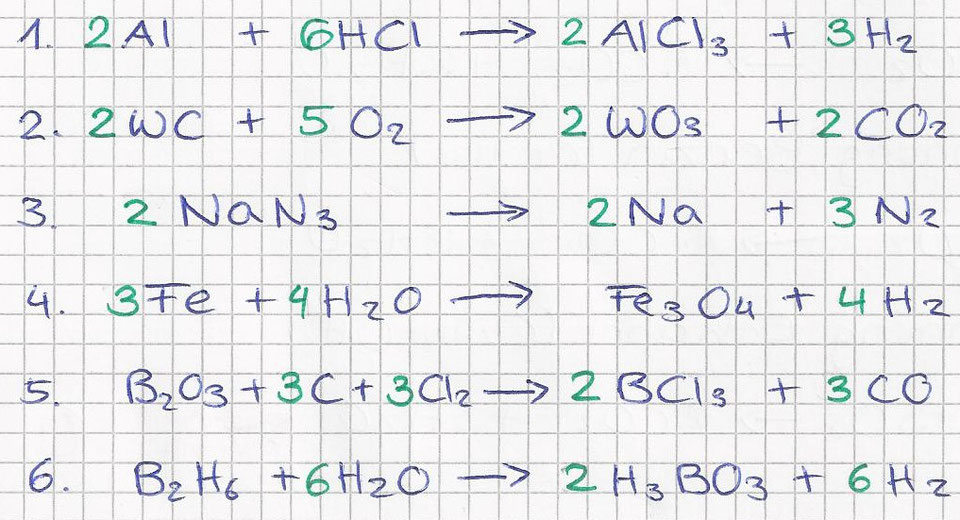 1. 2 Al + 6 HCl → 2 AlCl₃ + 3 H₂
2. 2 WC + 5 O₂ → 2 WO₃ + 2 CO₂
3. 2 NaN₃ → 2 Na + 3 N₂
4. 3 Fe + 4 H₂O → Fe₃O₄ + 4 H₂
5. B₂O₃ + 3 C + 3 Cl₂ → 2 BCl₃ + 3 CO
6. B₂H₆ + 6 H₂O → 2 H₃BO₃ + 6 H₂